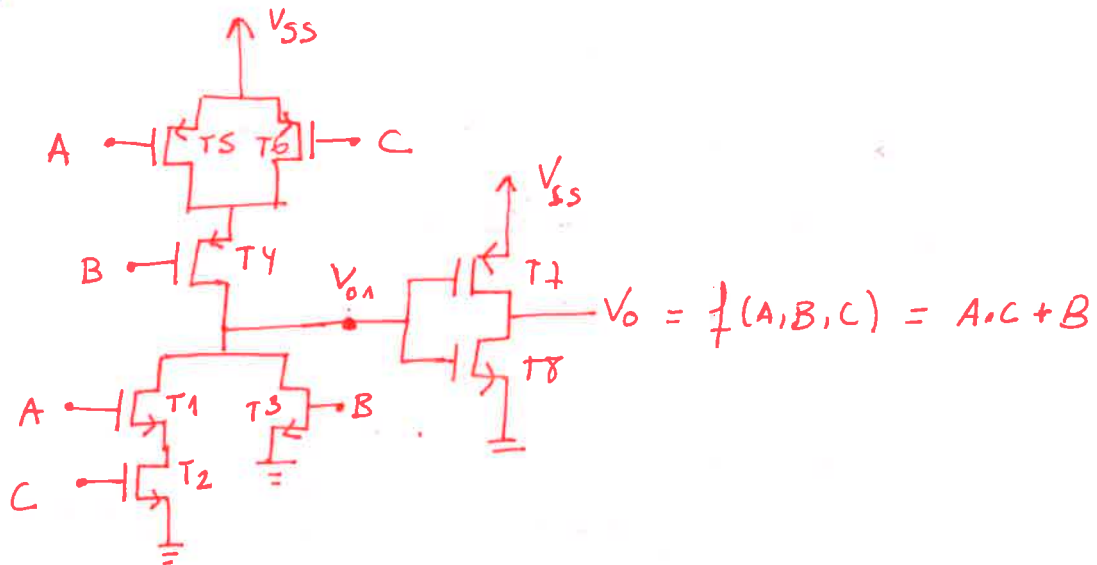 VSS
A T5 T6 C
VSS
B T4
Vo1
T7
Vo = f(A,B,C) = A.C + B
T8
A T1 T3 B
C T2